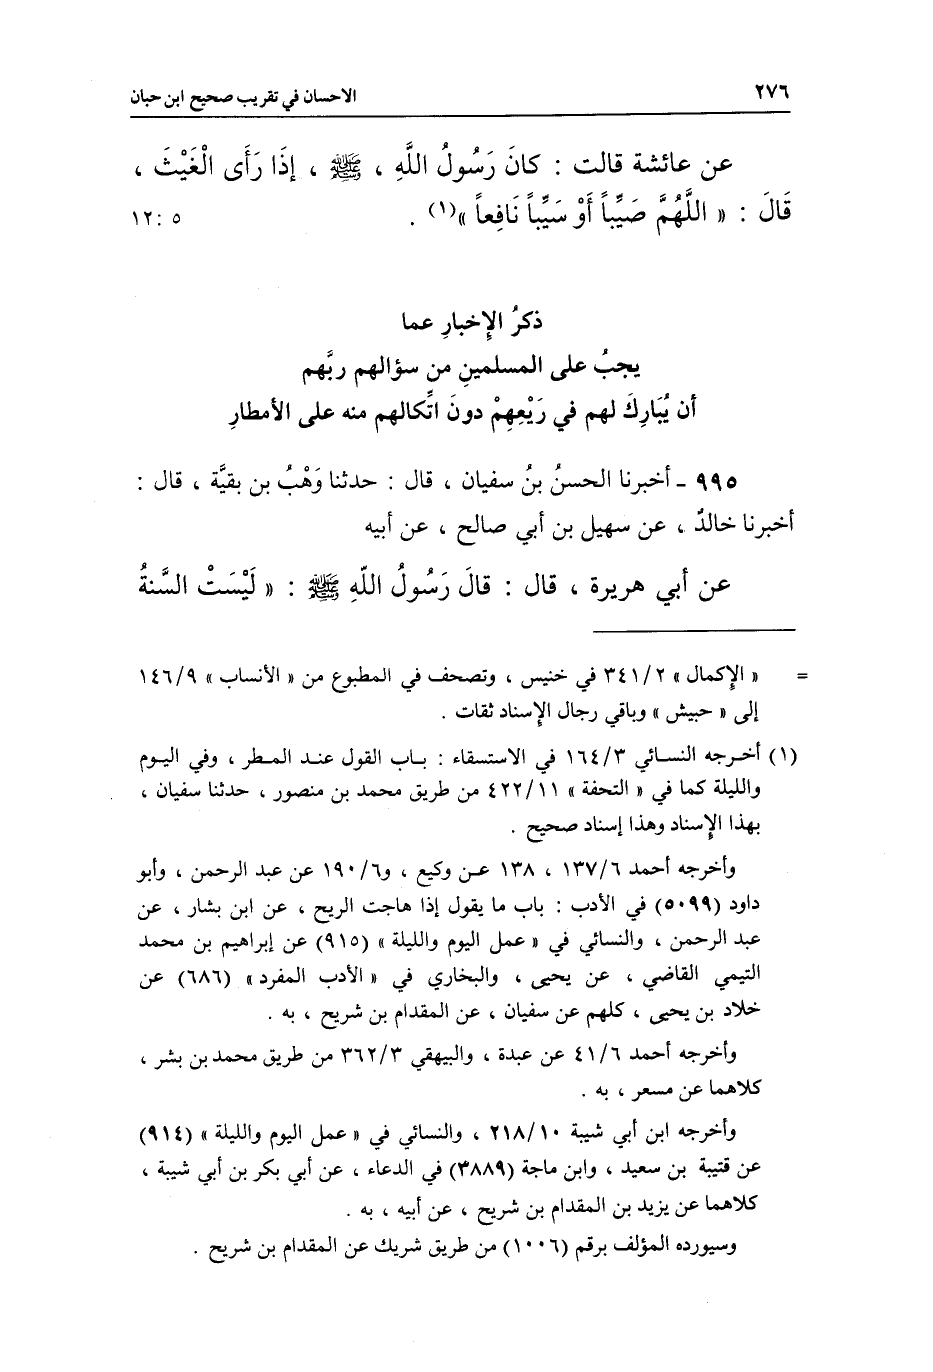 ٢٧٦ الاحسان في تقريب صحيح ابن حبان
عن عائشة قالت : كانَ رَسُولُ اللَّهِ ، ﷺ ، إذَا رَأَى الْغَيْثَ ،
قَالَ : « اللَّهُمَّ صَيِّباً أَوْ سَيِّباً نَافِعاً »(١) . ٥ :١٢
ذكرُ الإِخبارِ عما
يجبُ على المسلمينِ من سؤالهم ربَّهم
أن يُبَارِكَ لهم في رَيْعِهِمْ دونَ اتِّكالهم منه على الأمطارِ
٩٩٥ - أخبرنا الحسنُ بنُ سفيان ، قال : حدثنا وَهْبُ بن بقيَّة ، قال :
أخبرنا خالدٌ ، عن سهيل بن أبي صالح ، عن أبيه
عن أبي هريرة ، قال : قالَ رَسُولُ اللّهِ ﷺ : « لَيْسَتْ السَّنةُ
= « الإِكمال » ٣٤١/٢ في خنيس ، وتصحف في المطبوع من « الأنساب » ١٤٦/٩
إلى « حبيش » وباقي رجال الإسناد ثقات .
(١) أخرجه النسائي ١٦٤/٣ في الاستسقاء : باب القول عند المطر ، وفي اليوم
والليلة كما في « التحفة » ٤٢٢/١١ من طريق محمد بن منصور ، حدثنا سفيان ،
بهذا الإسناد وهذا إسناد صحيح .
وأخرجه أحمد ١٣٧/٦ ، ١٣٨ عن وكيع ، و١٩٠/٦ عن عبد الرحمن ، وأبو
داود (٥٠٩٩) في الأدب : باب ما يقول إذا هاجت الريح ، عن ابن بشار ، عن
عبد الرحمن ، والنسائي في « عمل اليوم والليلة » (٩١٥) عن إبراهيم بن محمد
التيمي القاضي ، عن يحيى ، والبخاري في « الأدب المفرد » (٦٨٦) عن
خلاد بن يحيى ، كلهم عن سفيان ، عن المقدام بن شريح ، به .
وأخرجه أحمد ٤١/٦ عن عبدة ، والبيهقي ٣٦٢/٣ من طريق محمد بن بشر ،
كلاهما عن مسعر ، به .
وأخرجه ابن أبي شيبة ٢١٨/١٠ ، والنسائي في « عمل اليوم والليلة » (٩١٤)
عن قتيبة بن سعيد ، وابن ماجة (٣٨٨٩) في الدعاء ، عن أبي بكر بن أبي شيبة ،
كلاهما عن يزيد بن المقدام بن شريح ، عن أبيه ، به .
وسيورده المؤلف برقم (١٠٠٦) من طريق شريك عن المقدام بن شريح .